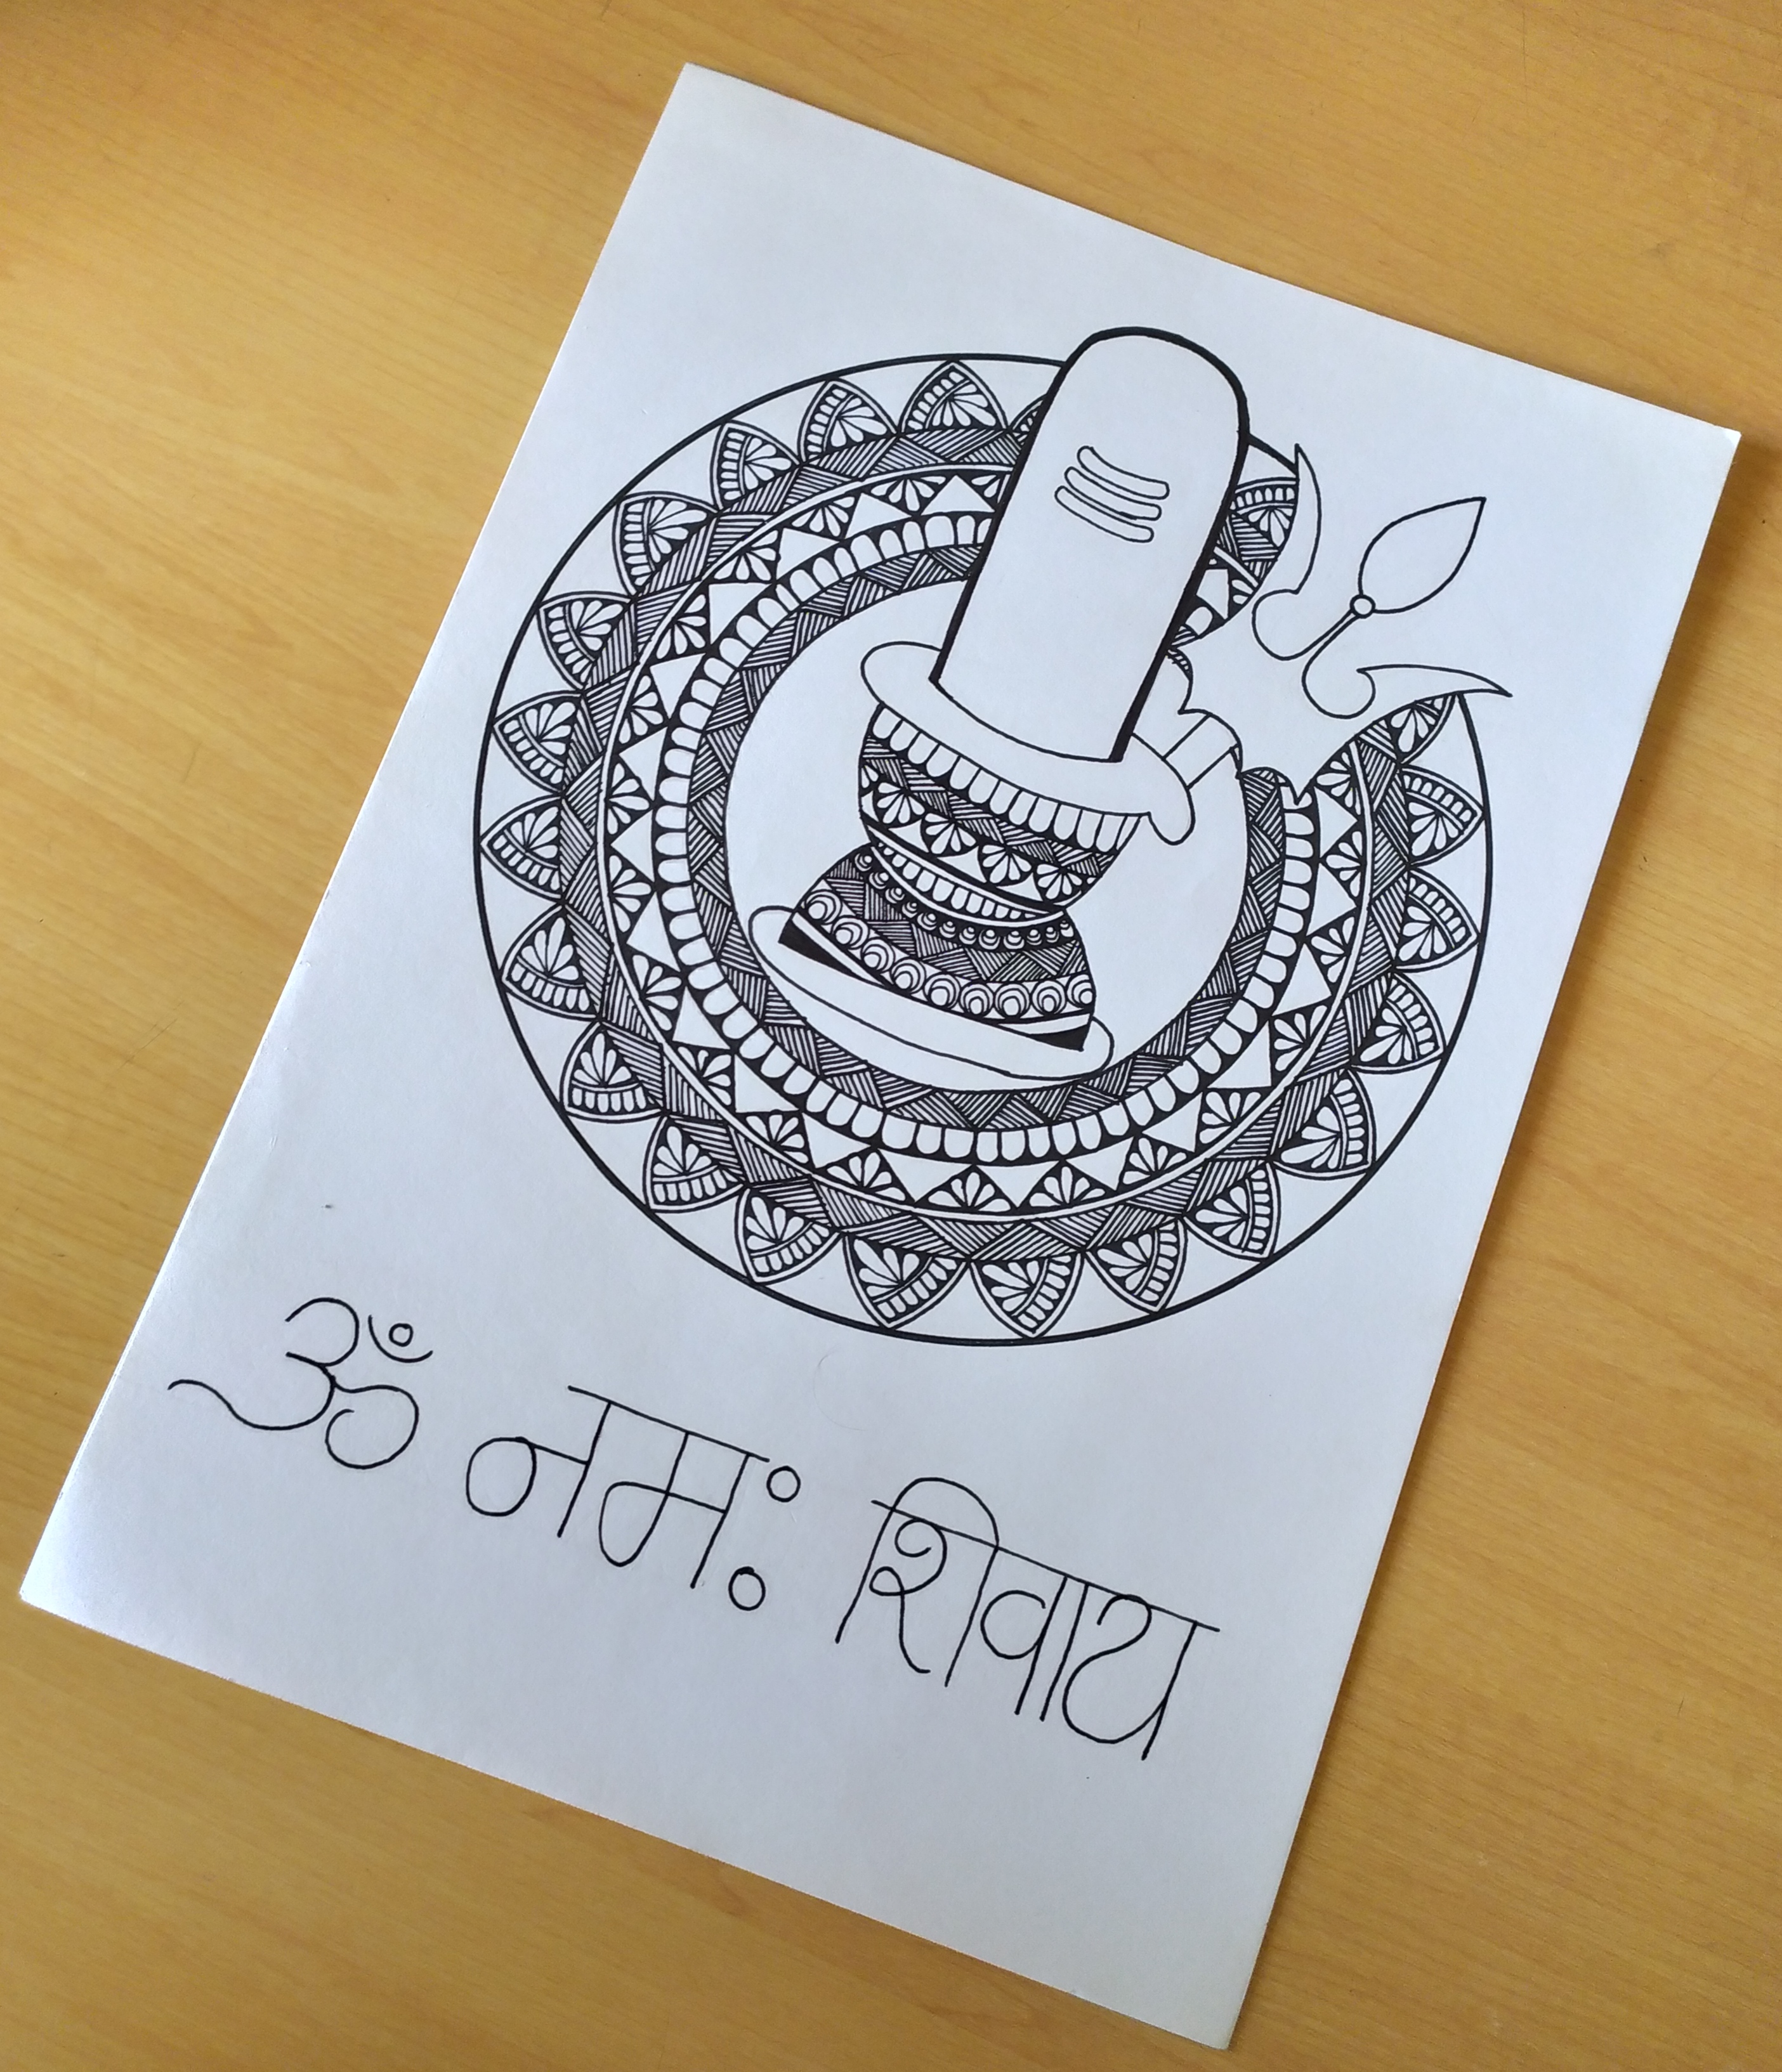 ॐ नमः शिवाय